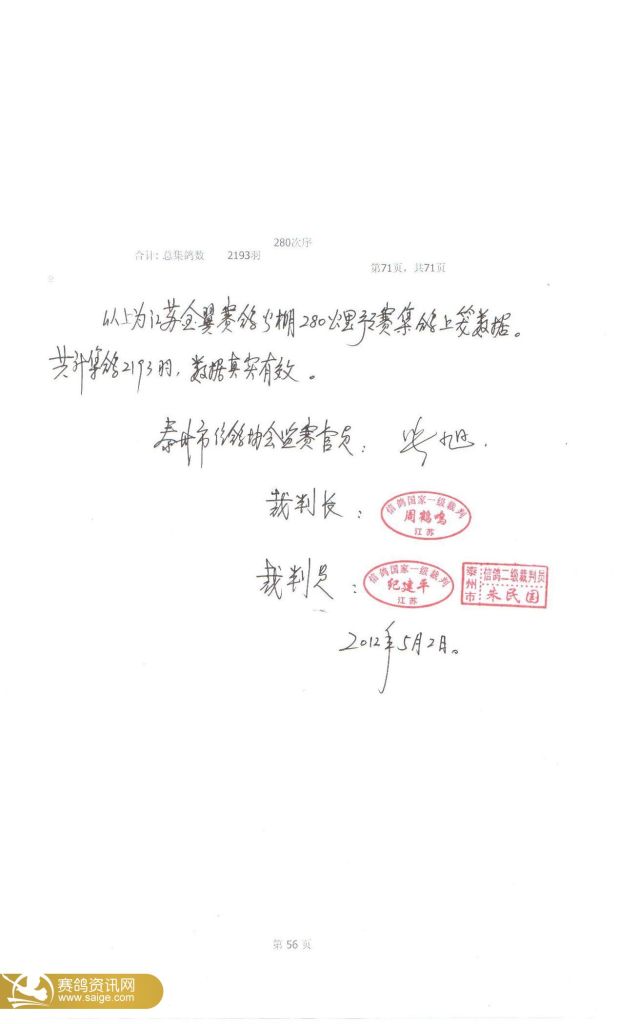 280次序
合计: 总集鸽数 2193羽
第71页, 共71页
以上为江苏金翼赛鸽公棚280公里预赛集鸽上笼数据。
共计集鸽2193羽, 数据真实有效。
泰州市信鸽协会监赛官员:
裁判长:
信鸽国家一级裁判
周鹤鸣
江苏
裁判员:
信鸽国家一级裁判
纪建平
江苏
泰州市
信鸽二级裁判员
朱民国
2012年5月2日。
第 56 页
赛鸽资讯网
www.saige.com